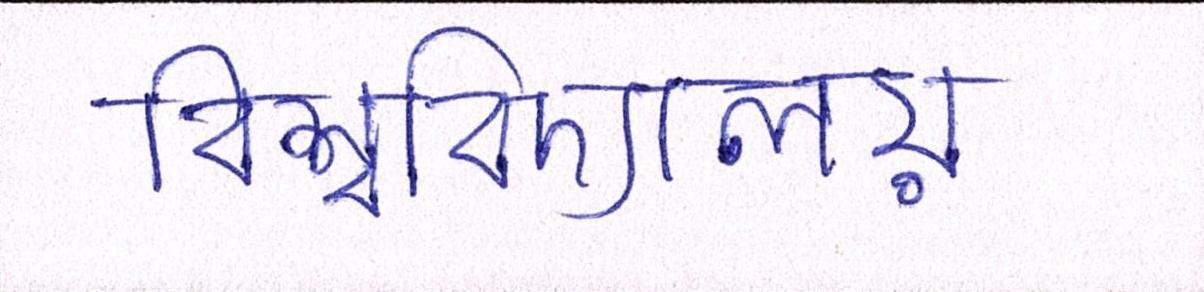 বিশ্ববিদ্যালয়